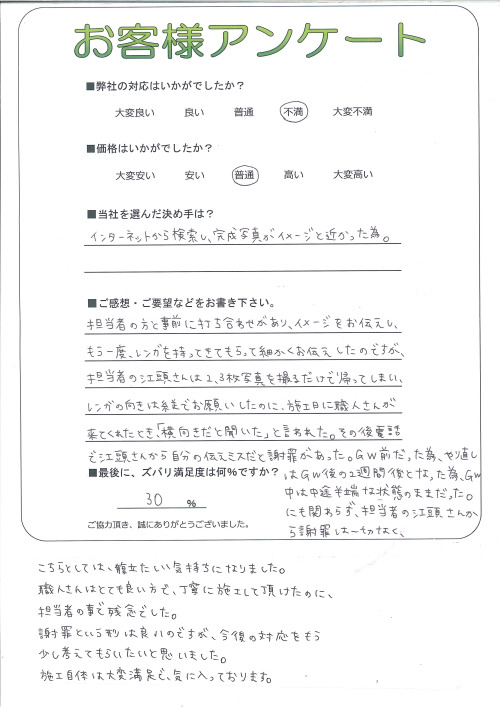 お客様アンケート
■弊社の対応はいかがでしたか？
大変良い　良い　普通　不満　大変不満
■価格はいかがでしたか？
大変安い　安い　普通　高い　大変高い
■当社を選んだ決め手は？
インターネットから検索し、完成写真がイメージと近かった為。
■ご感想・ご要望などをお書き下さい。
担当者の方と事前に打ち合わせがあり、イメージをお伝えし、
もう一度、レンガを持ってきてもらって細かくお伝えしたのですが、
担当者の江頭さんは2、3枚写真を撮るだけで帰ってしまい、
レンガの向きは縦でお願いしたのに、施工日に職人さんが
来てくれたとき、「横向きだと聞いた」と言われた。その後電話
で江頭さんから自分の伝えミスだと謝罪があった。GW前だった為、やり直し
はGW後の2週間後となった為、GW
中は中途半端な状態のままだった。
にも関わらず、担当者の江頭さんか
ら謝罪は一切なく、
■最後に、ズバリ満足度は何％ですか？
30 ％
ご協力頂き、誠にありがとうございました。
こちらとしては、腹立たしい気持ちになりました。
職人さんはとても良い方で、丁寧に施工して頂けたのに、
担当者の事で残念でした。
謝罪という形は良いのですが、今後の対応をもう
少し考えてもらいたいと思いました。
施工自体は大変満足で、気に入っております。